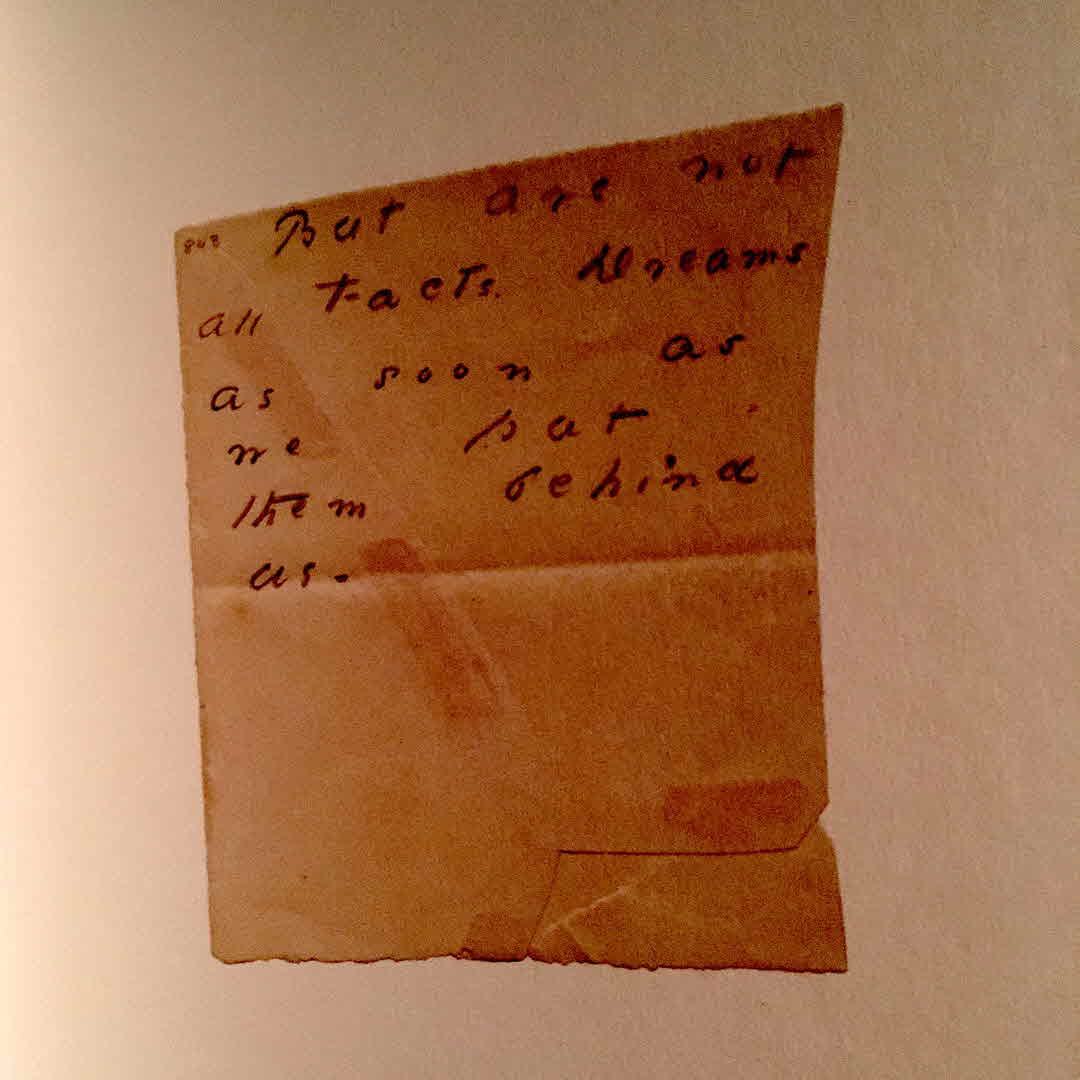 843
But are not
all Facts Dreams
as soon as
we put
them behind
us -